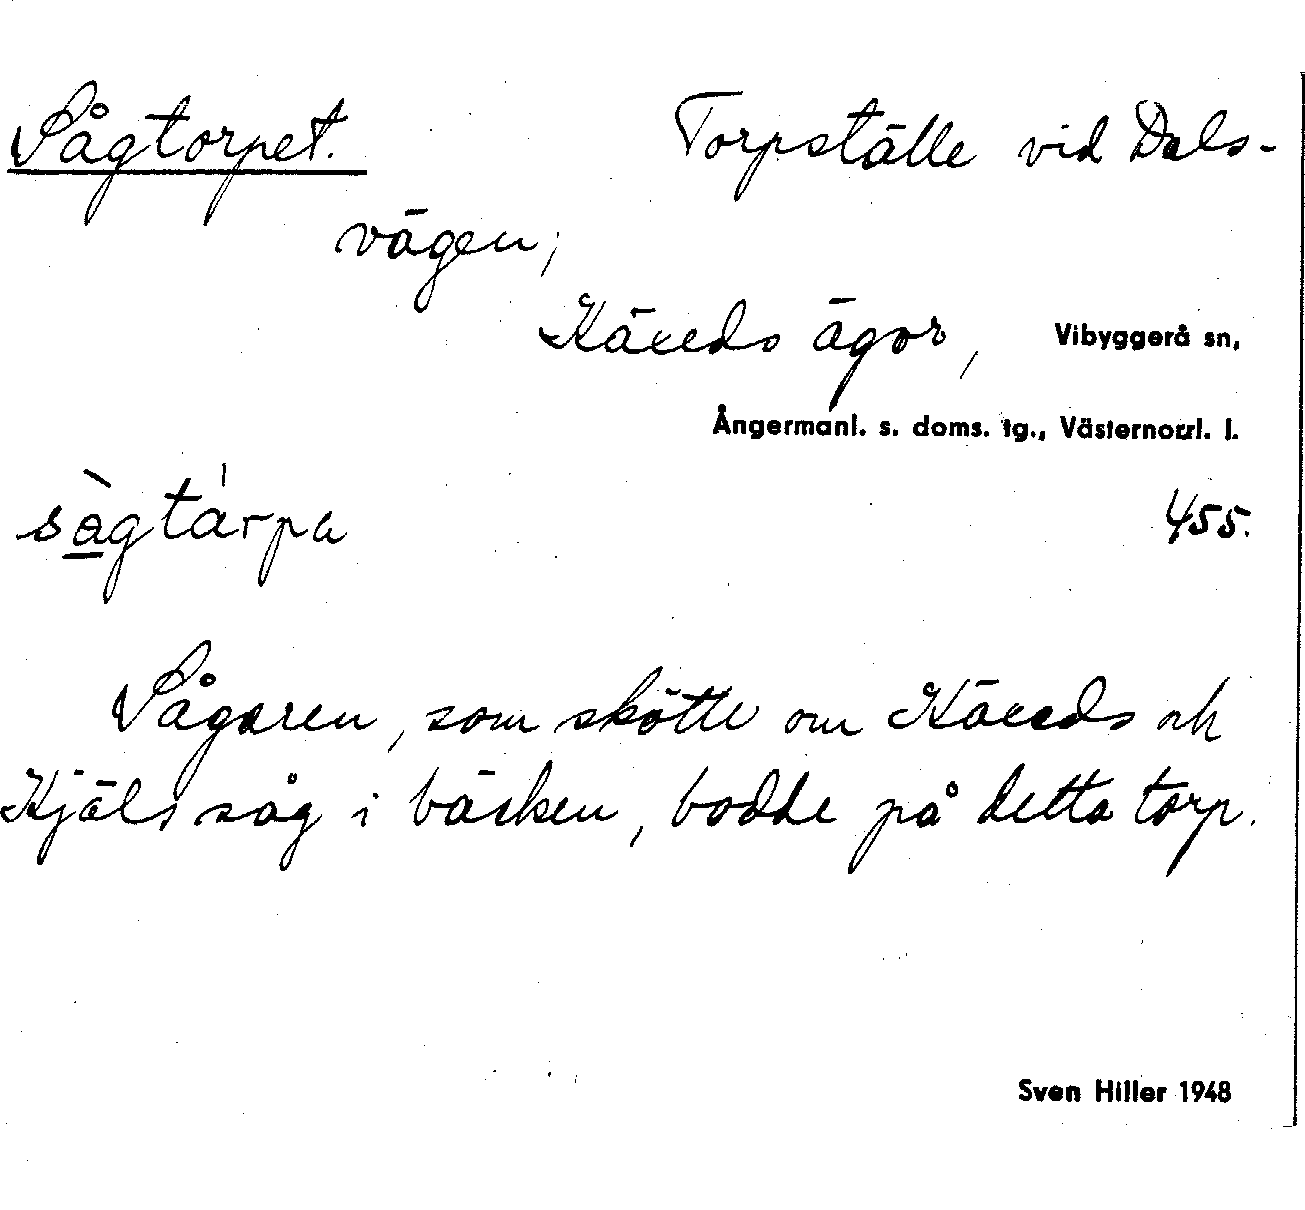 Sågtorpet. Torpställe vid Dals-
vägen;
Käxeds ägor, Vibyggerå sn,
Ångermanl. s. doms. tg., Västernorrl. l.
sàgtárpa 455.
Sågaren, som skötte om Käxeds och
Kjäls såg i bäcken, bodde på detta torp.
Sven Hiller 1948